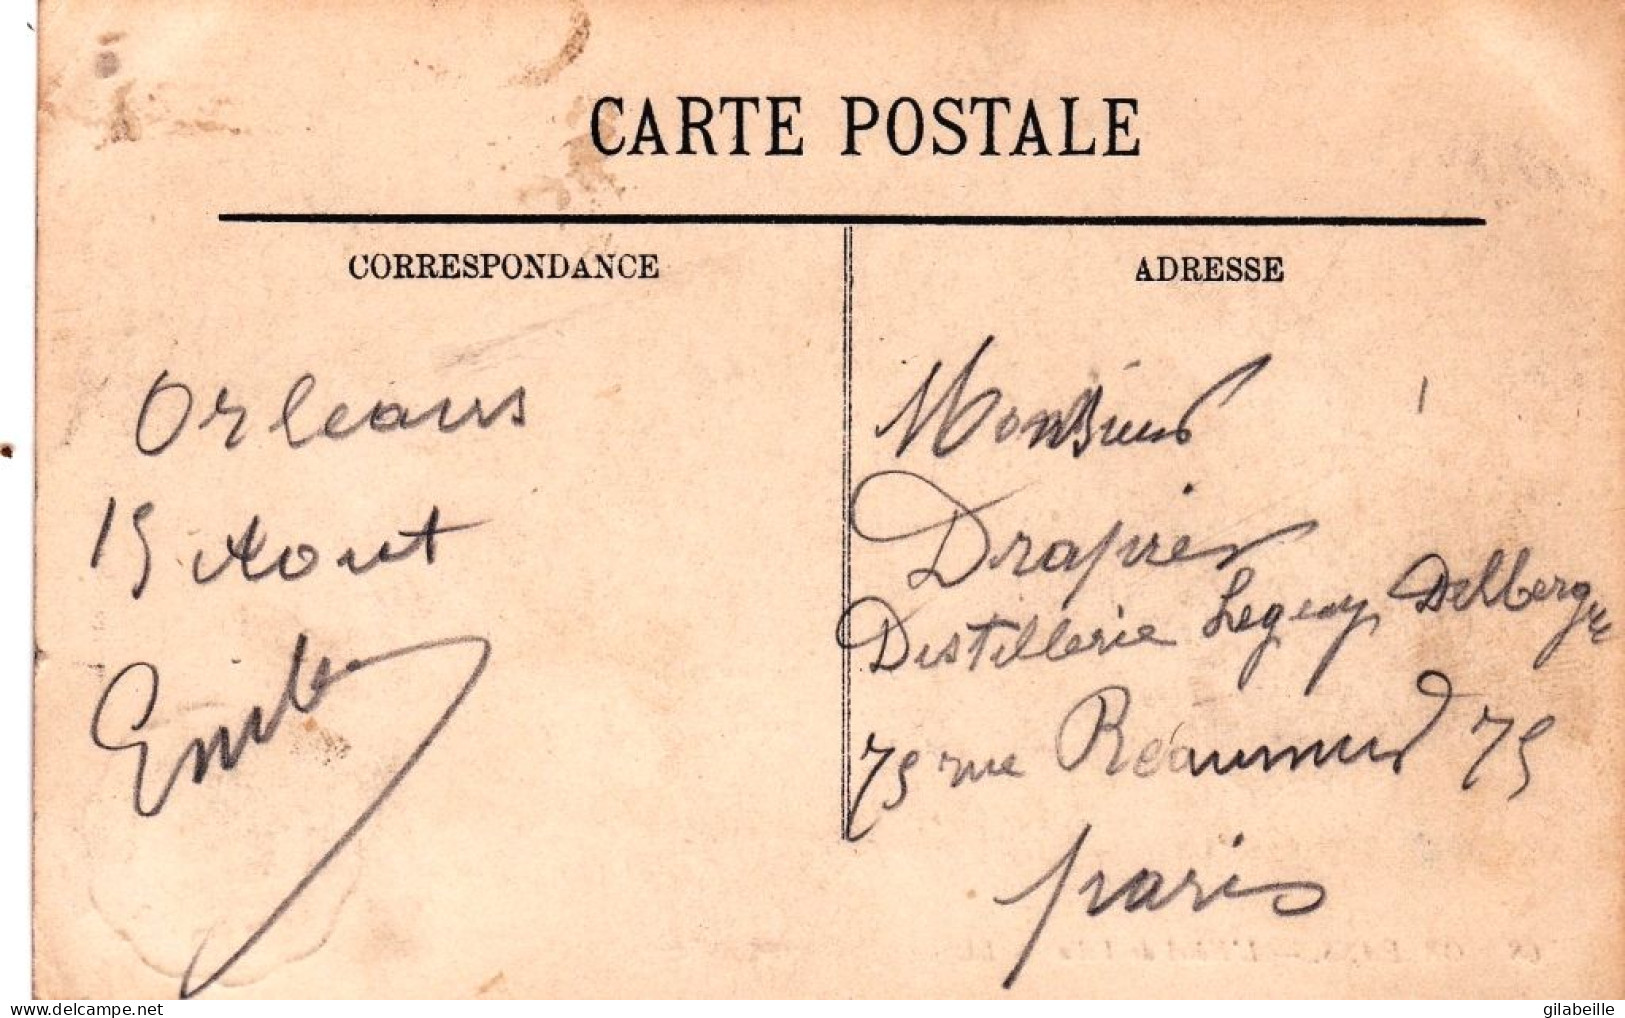 CARTE POSTALE
CORRESPONDANCE
Orléans
15 Aout
Emile
ADRESSE
Monsieur
Drapier
Distillerie Legouy Delbergue
75 rue Réaumur 75
paris
delcampe.net
gilabeille